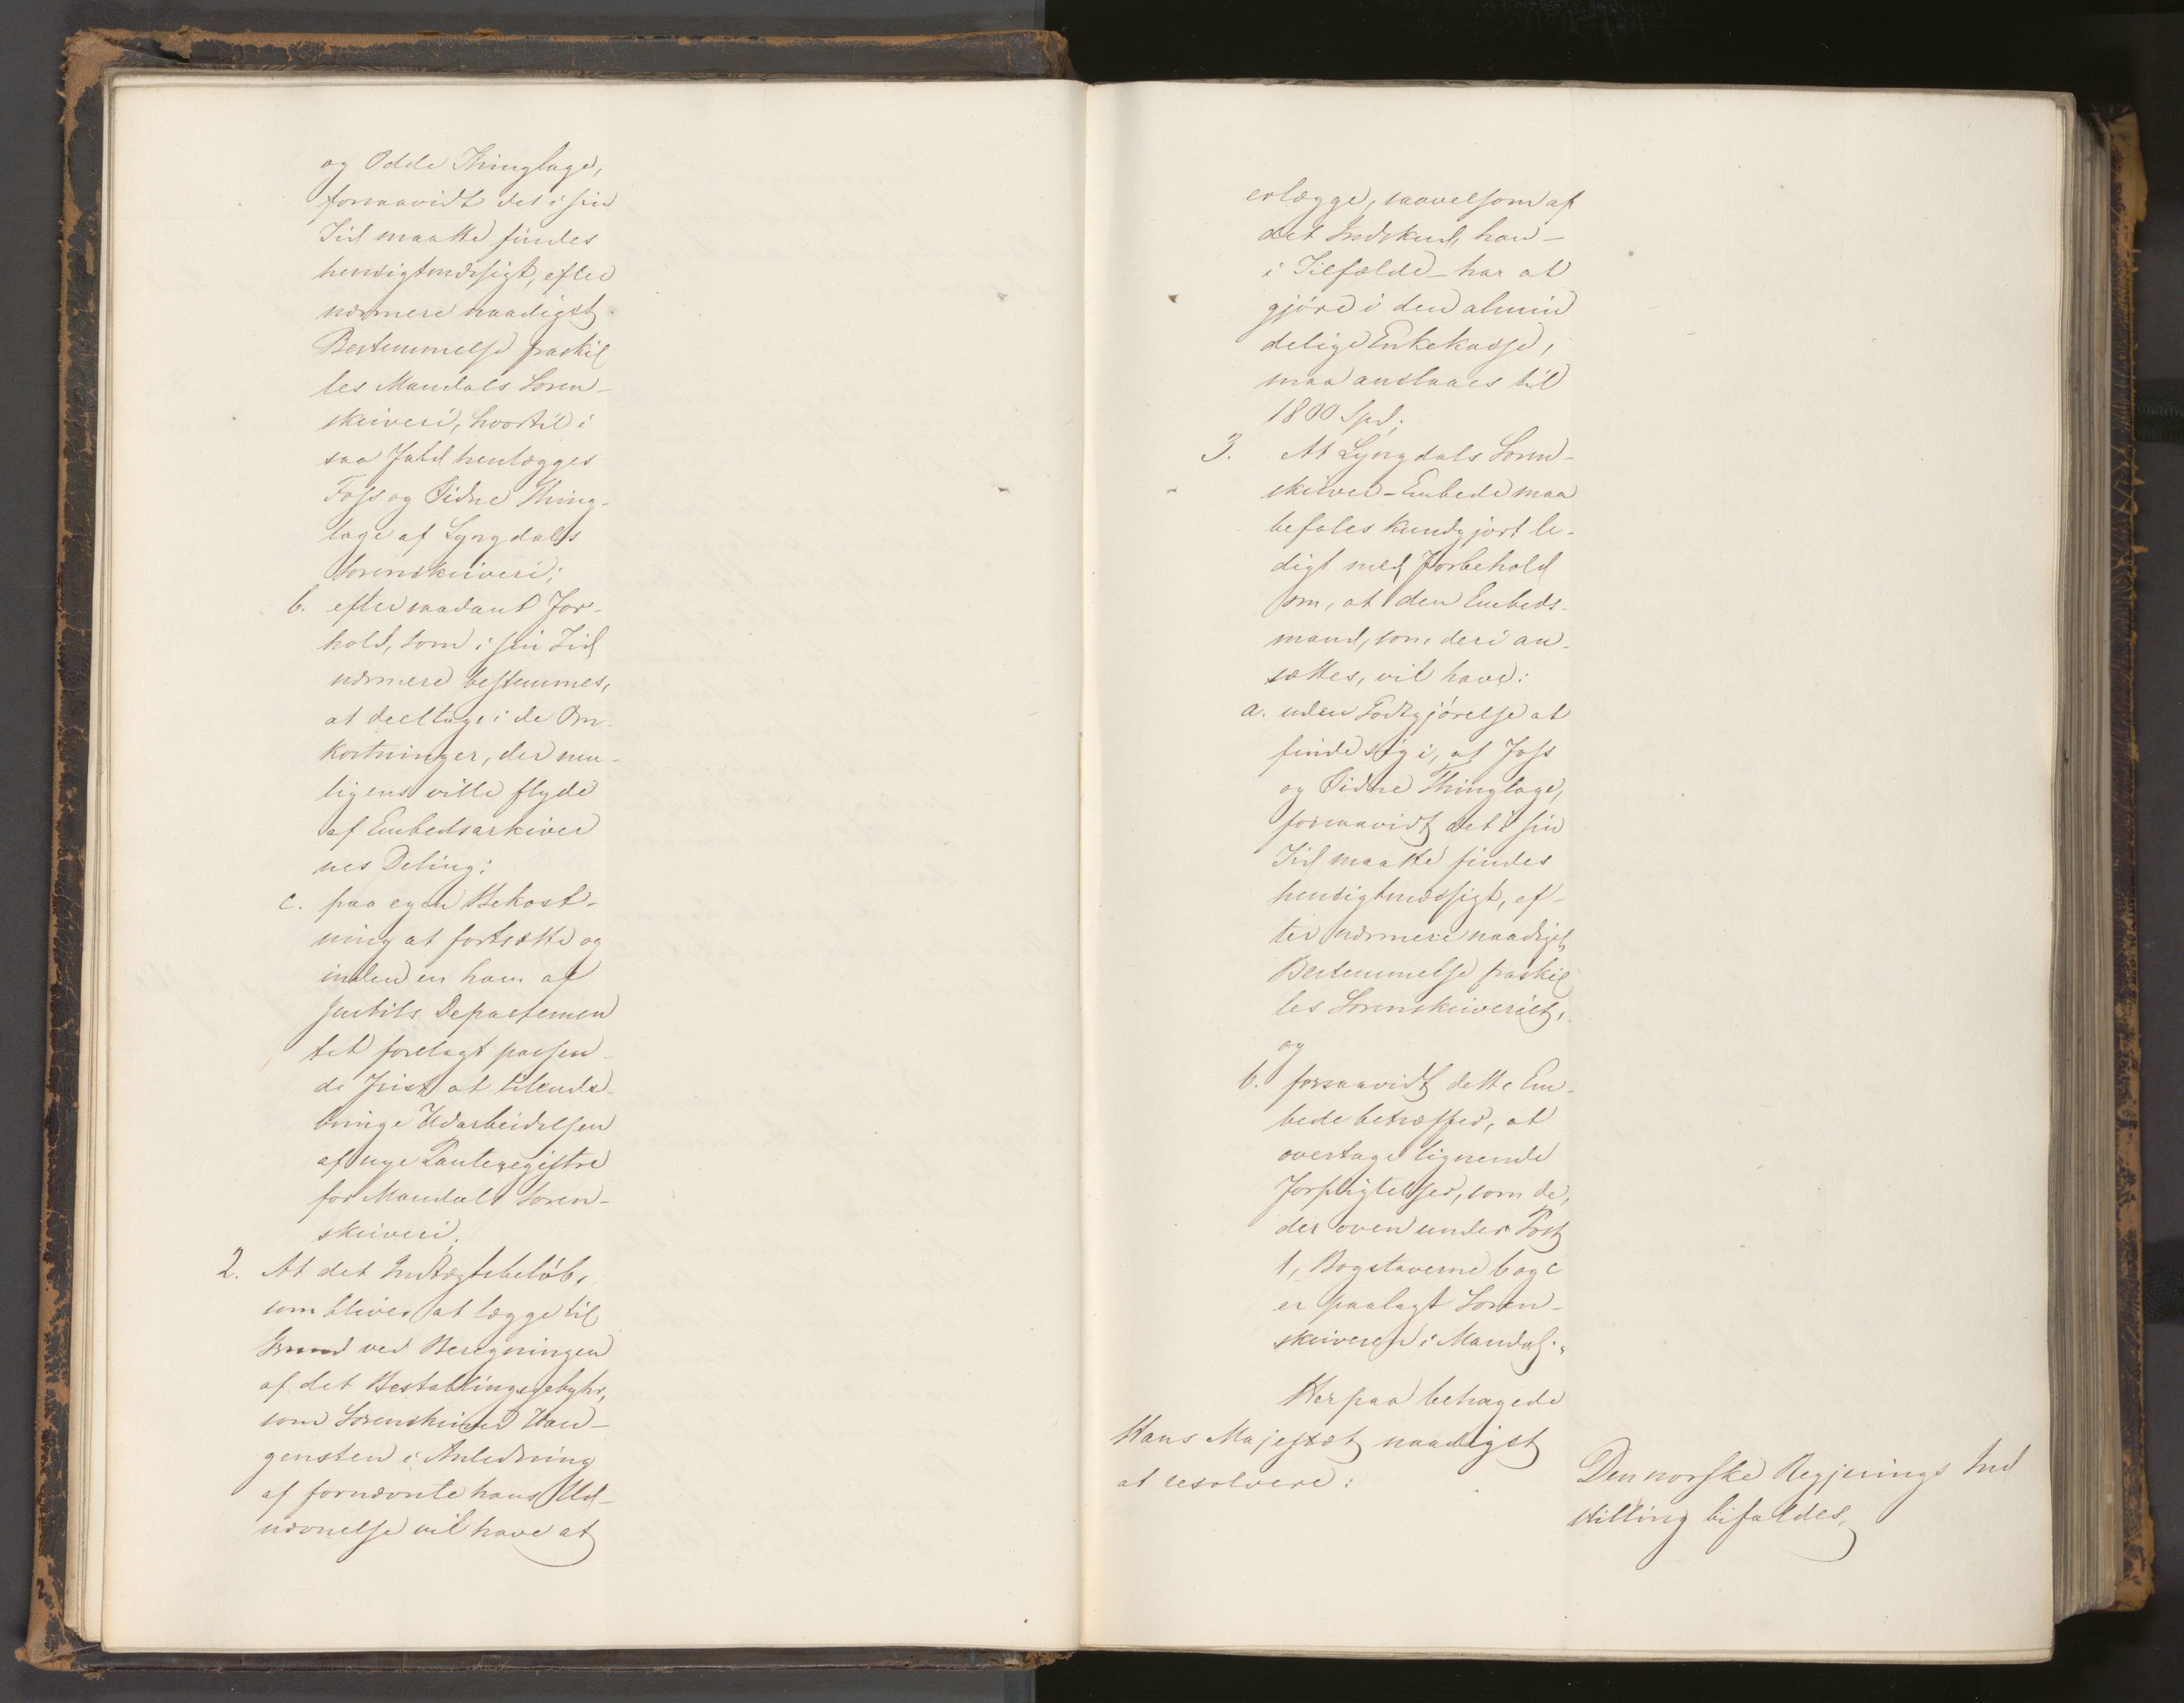 og Odde Thinglage,
forsaavidt det i sin
Tid maatte findes
hensigtmæssigt, efter
nærmere naadigst
Bestemmelse fraskil
les Mandals Soren-
skriveri, hvortil i
saa Fald henlægges
Foss og Eidne Thing-
lage af Lyngdals
Sorenskriveri;
b. efter saadant For-
hold, som i sin Tid
nærmere bestemmes,
at deeltage i de Om-
kostninger, der mu-
ligens ville flyde
af Embedsarkiver
nes Deling;
c. paa egen Bekost-
ning at fortsætte og
inden en ham af
Justits Departemen
tet forelagt passen-
de Frist at tilende-
bringe Udarbeidelsen
af nye Panteregistre
for Mandals Soren-
skriveri;
2. At det Indtægtsbeløb,
som bliver at lægge til
Grund ved Beregningen
af det Bestallingsgebyhr,
som Sorenskriver Han-
gensten i Anledning
af fornævnte hans Ud-
nævnelse vil have at
erlægge, saavelsom af
det Indskud, han -
i Tilfælde - har at
gjøre i den almin
delige Enkekasse,
maa anslaaes til
1800 Spd;
3. At Lyngdals Soren-
skriver-Embede maa
befales kundgjort le-
digt med Forbehold
om, at den Embeds-
mand, som deri an-
sættes, vil have:
a. uden Godtgjørelse at
finde sig i, at Foss
og Eidne Thinglage,
forsaavidt det i sin
Tid maatte findes
hensigtmæssigt, ef-
ter nærmere naadigst
Bestemmelse fraskil
les Sorenskriveriet,
og
b. forsaavidt dette Em-
bede betræffer, at
overtage lignende
Forpligtelser, som de,
der oven under Post
1, Bogstaverne b og c
er paalagt Soren-
skriveren i Mandal."
Herpaa behagede
Hans Majestæt naadigst
at resolvere:
Den norske Regjerings Ind
stilling bifaldes.